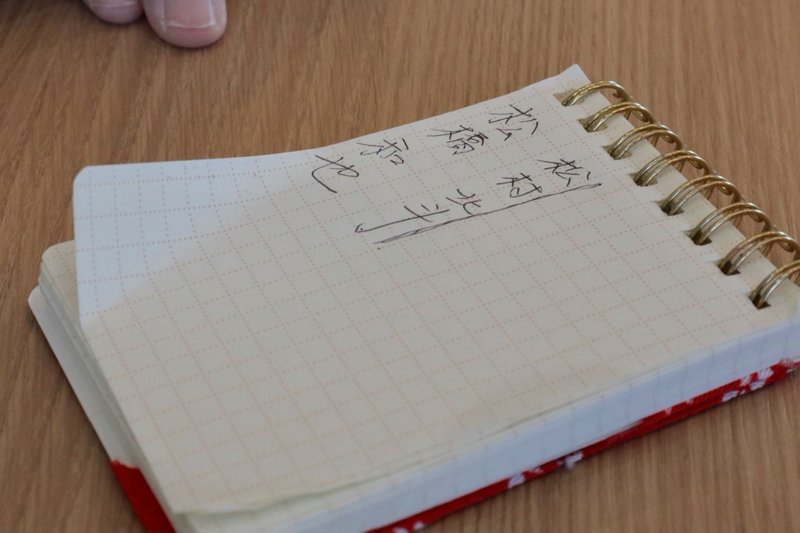 松村北斗
松橋和也